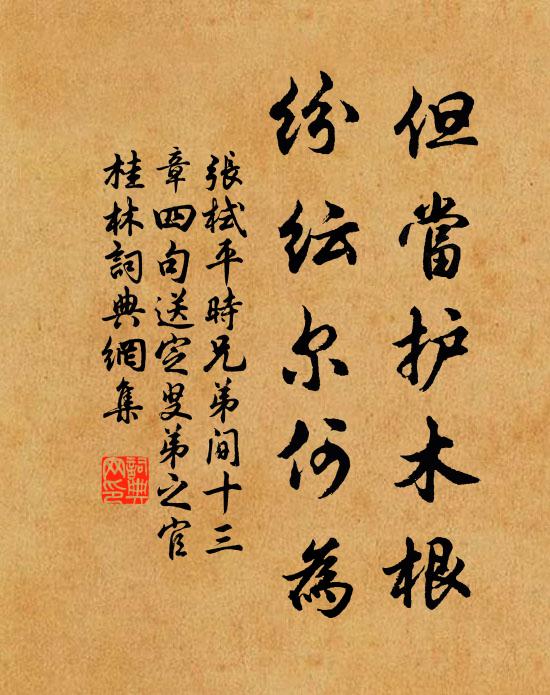 但當护木根
紛紜尔何為
張栻平時兄弟间十三
章四句送定叟弟之官
桂林詞典網集
詞典網印